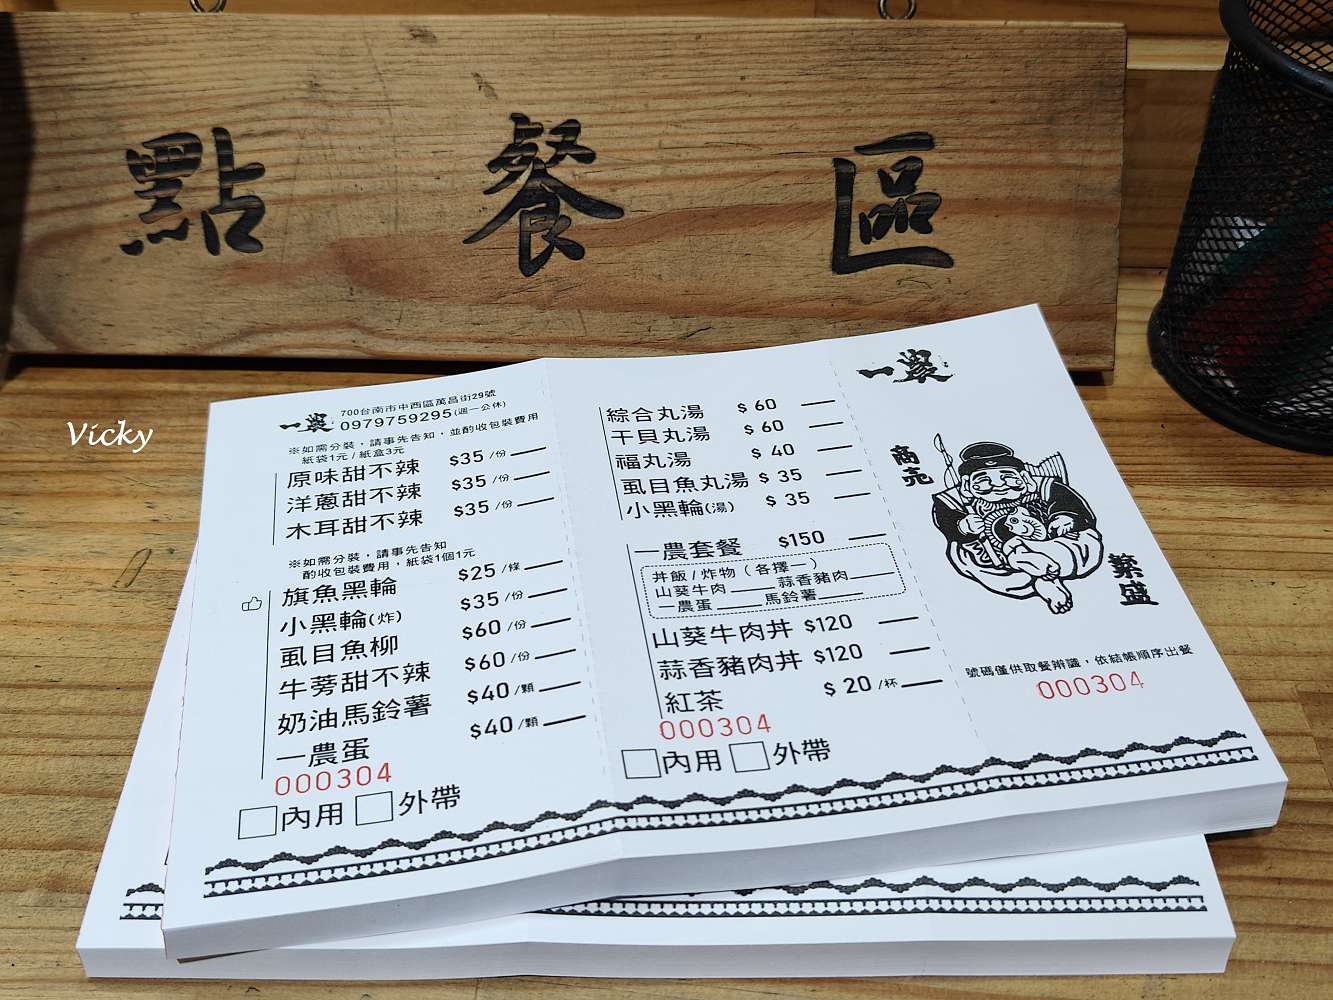 點餐區
Vicky
一農
700台南市中西區萬昌街29號
0979759295(週一公休)
※如需分裝，請事先告知，並酌收包裝費用
紙袋1元/紙盒3元
原味甜不辣 $35/份
洋蔥甜不辣 $35/份
木耳甜不辣 $35/份
※如需分裝，請事先告知
酌收包裝費用，紙袋1個1元
旗魚黑輪 $25/條
小黑輪(炸) $35/份
虱目魚柳 $60/份
牛蒡甜不辣 $60/份
奶油馬鈴薯 $40/顆
一農蛋 $40/顆
000304
內用 外帶
綜合丸湯 $60
干貝丸湯 $60
福丸湯 $40
虱目魚丸湯 $35
小黑輪(湯) $35
一農套餐 $150
丼飯/炸物（各擇一）
山葵牛肉 蒜香豬肉
一農蛋 馬鈴薯
山葵牛肉丼 $120
蒜香豬肉丼 $120
紅茶 $20/杯
000304
內用 外帶
一農
商売
繁盛
號碼僅供取餐辨識，依結帳順序出餐
000304